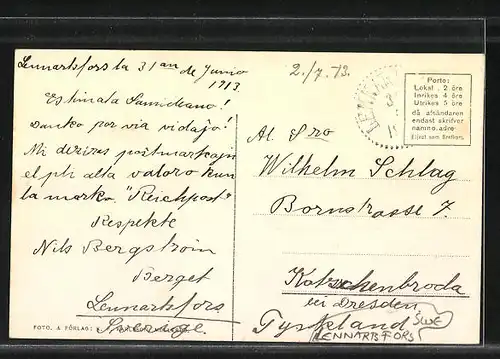 Lennartsfors la 31an de Junio
1913.
Estimata Samideano!
Danko por via vidaĵo!
Mi deziras postmarkojn
el pli alta valoro kun
la marko "Reichpost"
Respekte
Nils Bergström
Berget
Lennartsfors
Sverige.
FOTO. & FÖRLAG:
2./7. 13.
Porto:
Lokal. 2 öre
Inrikes 4 öre
Utrikes 5 öre
då afsändaren
endast skrifver
namn o. adre
Eljest som Brefkort.
Al Sro
Wilhelm Schlag
Bornstrasse 7.
Kotzschenbroda
bei Dresden
Tyskland
SWE
LENNARTSFORS